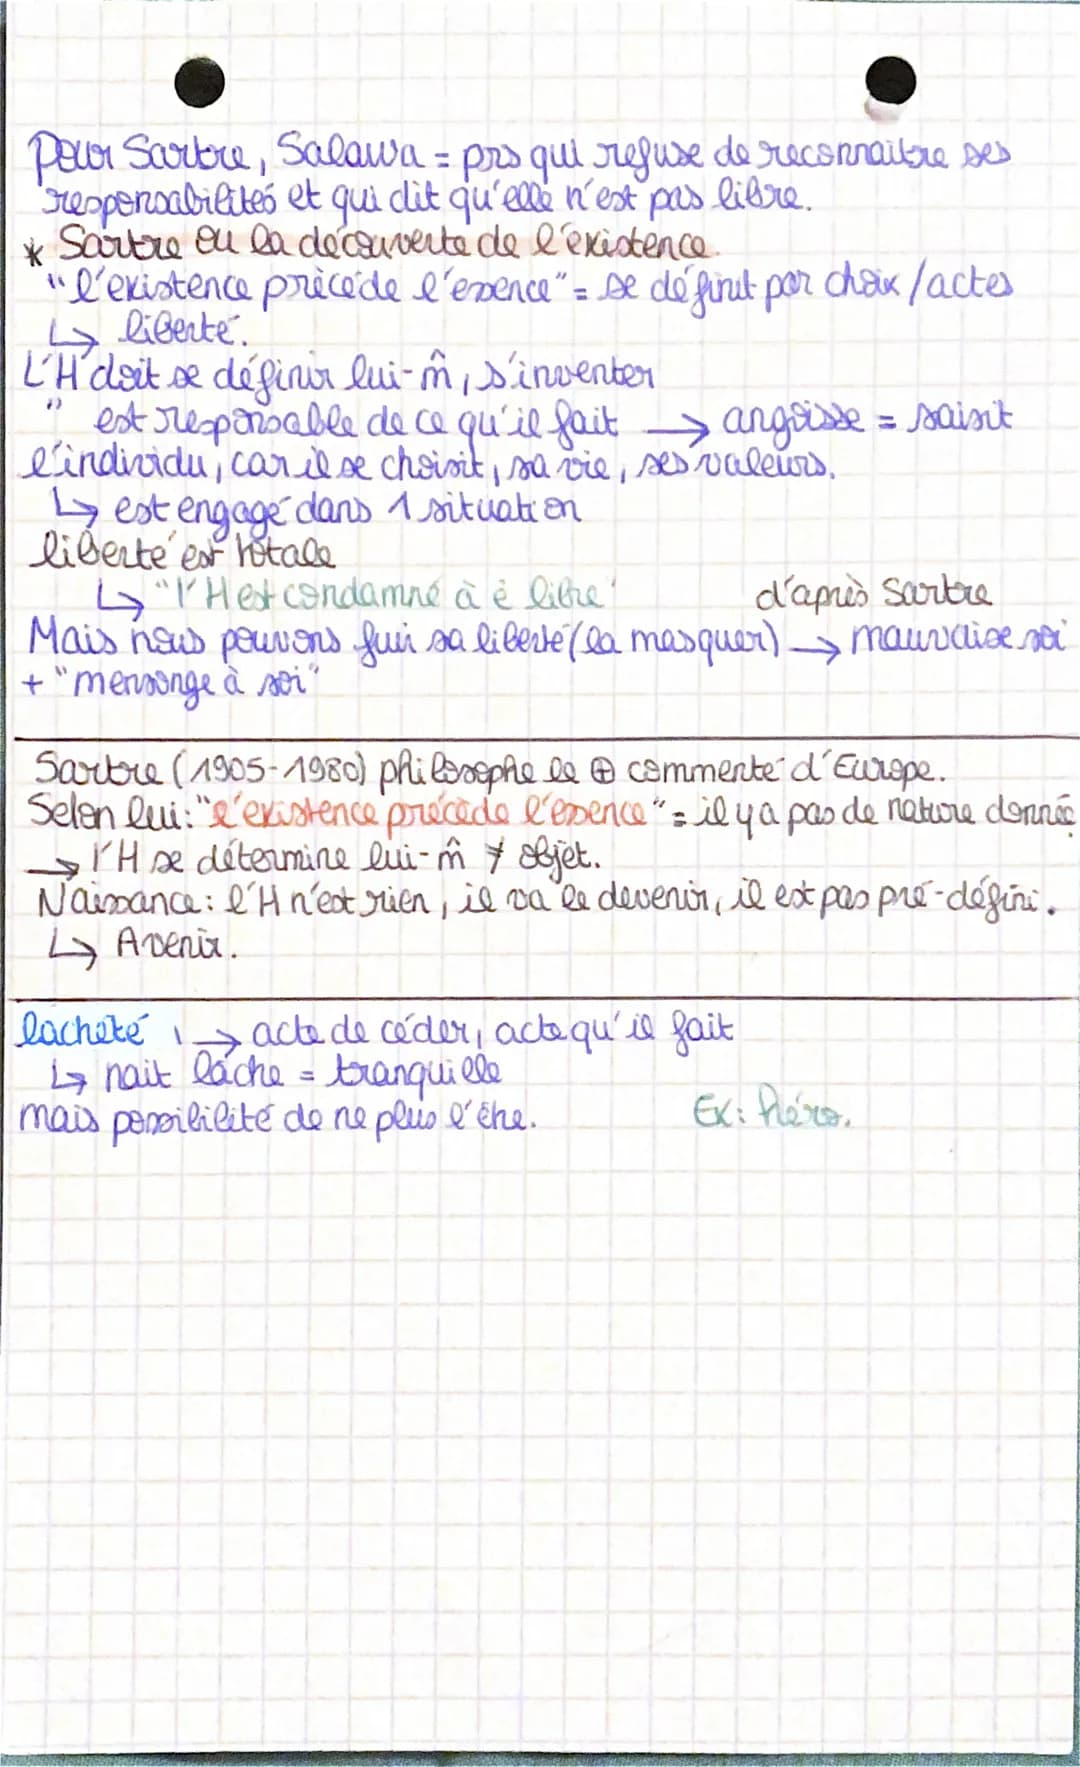 Pour Sartre, Salawa = prs qui refuse de reconnaître ses
responsabilités et qui dit qu'elle n'est pas libre.
* Sartre ou la découverte de l'existence.
"l'existence précède l'essence" = se définit par choix/actes
↳ liberté.
L'H doit se définir lui-m̂, s'inventer
" est responsable de ce qu'il fait → angoisse = saisit
l'individu, car il se choisit, sa vie, ses valeurs.
↳ est engagé dans 1 situation
liberté est totale
↳ "l'H est condamné à ê libre" d'après Sartre
Mais nous pouvons fuir sa liberté (la masquer) → mauvaise soi
+ "mensonge à soi"
Sartre (1905-1980) philosophe le ⊕ commenté d'Europe.
Selon lui: "l'existence précède l'essence" = il y a pas de nature donnée
→ l'H se détermine lui-m̂ ≠ objet.
Naissance: l'H n'est rien, il va le devenir, il est pas pré-défini.
↳ Avenir.
lacheté → acte de céder, acte qu'il fait
↳ nait lâche = tranquille
mais possibilité de ne plus l'être. Ex: héro.